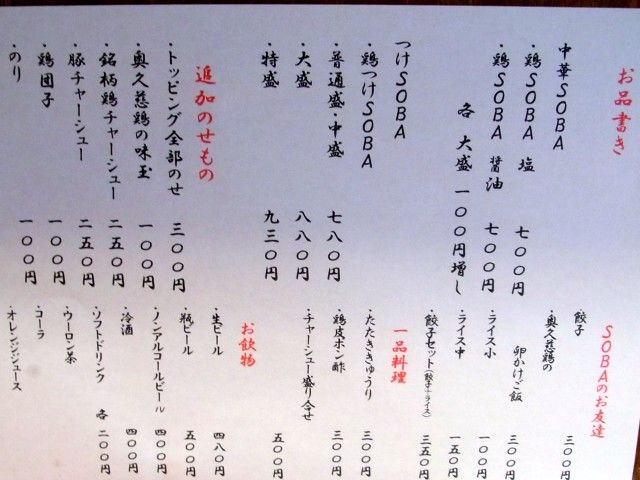 お品書き
中華SOBA
・鶏SOBA 塩 七00円
・鶏SOBA 醤油 七00円
各 大盛 一00円増し
つけSOBA
・鶏つけSOBA
・普通盛・中盛 七八0円
・大盛 八八0円
・特盛 九三0円
追加のせもの
・トッピング全部のせ 三00円
・奥久慈鶏の味玉 一00円
・銘柄鶏チャーシュー 二五0円
・豚チャーシュー 二五0円
・鶏団子 一00円
・のり 一00円
SOBAのお友達
餃子 三00円
・奥久慈鶏の
卵かけご飯 三00円
・ライス小 一00円
・ライス中 一五0円
・餃子セット(餃子+ライス) 三五0円
一品料理
・たたききゅうり 三00円
・鶏皮ポン酢 三00円
・チャーシュー盛り合せ 五00円
お飲物
・生ビール 四八0円
・瓶ビール 五00円
・ノンアルコールビール 四00円
・冷酒 四00円
・ソフトドリンク 各 二00円
・ウーロン茶
・コーラ
・オレンジジュース